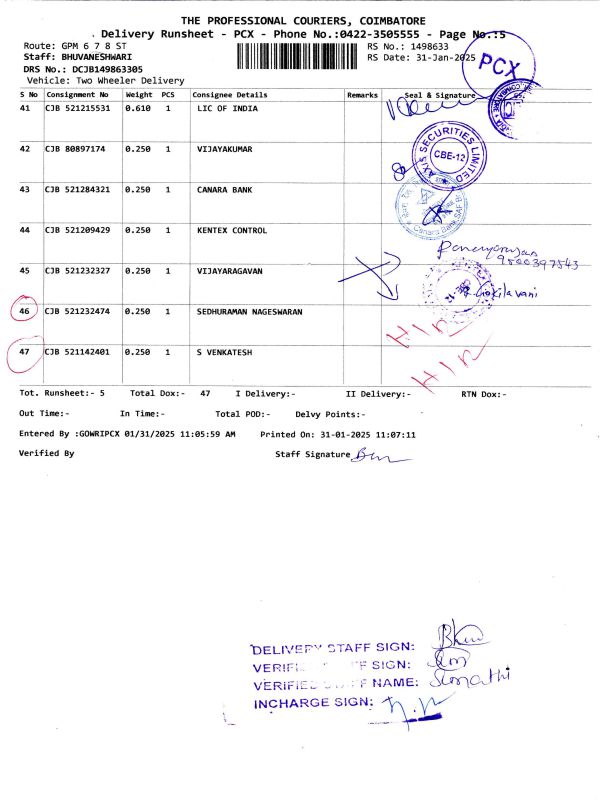 THE PROFESSIONAL COURIERS, COIMBATORE
Delivery Runsheet - PCX - Phone No.:0422-3505555 - Page No.:5
Route: GPM 6 7 8 ST
RS No.: 1498633
Staff: BHUVANESHWARI
RS Date: 31-Jan-2025
DRS No.: DCJB149863305
Vehicle: Two Wheeler Delivery
PCX
S No Consignment No Weight PCS Consignee Details Remarks Seal & Signature
41 CJB 521215531 0.610 1 LIC OF INDIA
42 CJB 80897174 0.250 1 VIJAYAKUMAR
AXIS SECURITIES LIMITED
CBE-12
43 CJB 521284321 0.250 1 CANARA BANK
Canara Bank
44 CJB 521209429 0.250 1 KENTEX CONTROL
9800397543
45 CJB 521232327 0.250 1 VIJAYARAGAVAN
Kokilavani
46 CJB 521232474 0.250 1 SEDHURAMAN NAGESWARAN
47 CJB 521142401 0.250 1 S VENKATESH
Tot. Runsheet:- 5 Total Dox:- 47 I Delivery:- II Delivery:- RTN Dox:-
Out Time:- In Time:- Total POD:- Delvy Points:-
Entered By :GOWRIPCX 01/31/2025 11:05:59 AM Printed On: 31-01-2025 11:07:11
Verified By Staff Signature
DELIVERY STAFF SIGN:
VERIFIED STAFF SIGN:
VERIFIED STAFF NAME: Sumathi
INCHARGE SIGN: